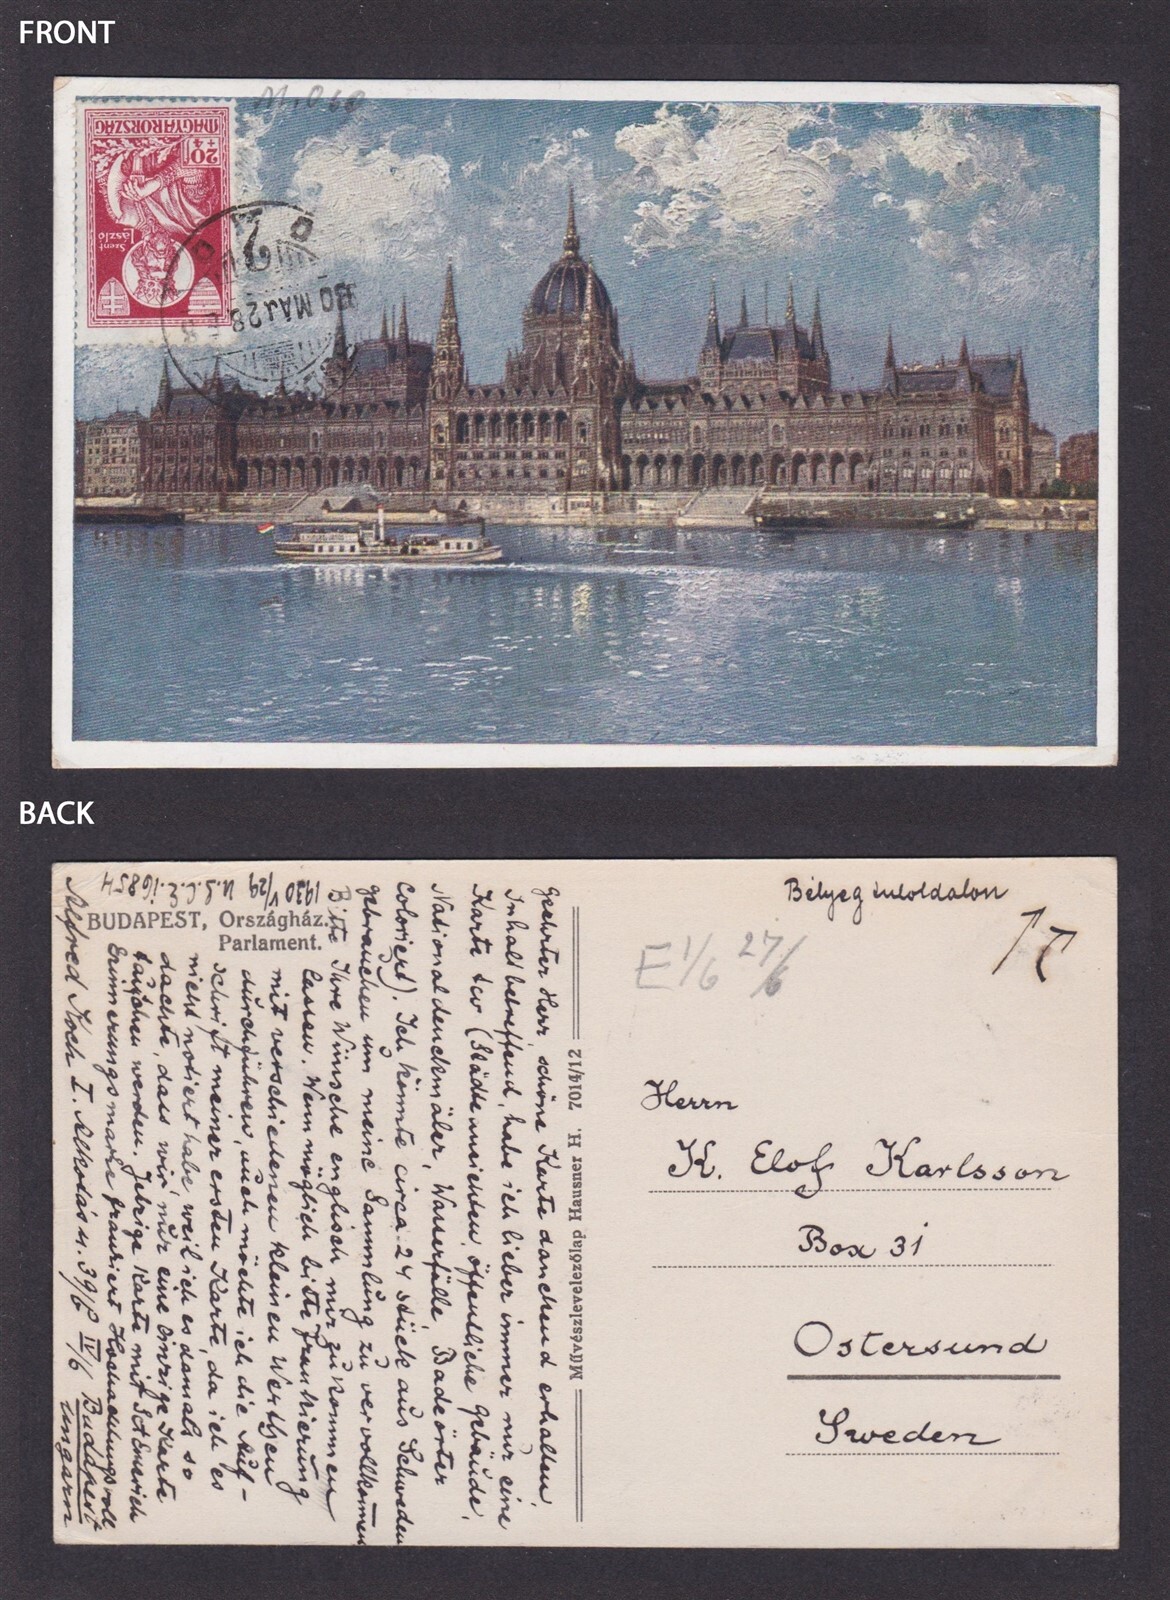 FRONT
M. 060
MAGYARORSZÁG
20
+4
Szent
László
2
930 MÁJ 28
BACK
Bélyeg túloldalon
E 1/6 27/6
BUDAPEST, Országház.
Parlament.
1930 V/29 U.S.C.E. 16854
Geehrter Herr, schöne Karte danehend erhalten.
Inhalt betreffend, habe ich lieber immer nur eine
Karte tcv (Städteansichten, öffentliche Gebäude,
Nationaldenckmäler, Wasserfälle, Badeörter
Coloriert). Ich könnte circa 24 Stück aus Schweden
gebrauchen um meine Sammlung zu vervollkomnen
Bitte Ihre Wünsche englisch mir zukommen
lassen. Wenn möglich bitte frankierung
mit verschiedenen kleinen Werthen
durchführen, auch möchte ich die Auf-
schrift meiner ersten Karte, da ich es
nicht notiert habe weil ich es damals so
dachte, dass wir nur eine einzige Karte
tauschen werden. Jetzige Karte mit St Emerich
Erinnerungsmarke frankiert Hochachtungsvoll
Alfred Koch I. Alkotás u. 39/c IV/6 Budapest
Ungarn
Művészlevelezőlap Hausner H. 7014/12
Herrn
K. Elof Karlsson
Box 31
Ostersund
Sweden